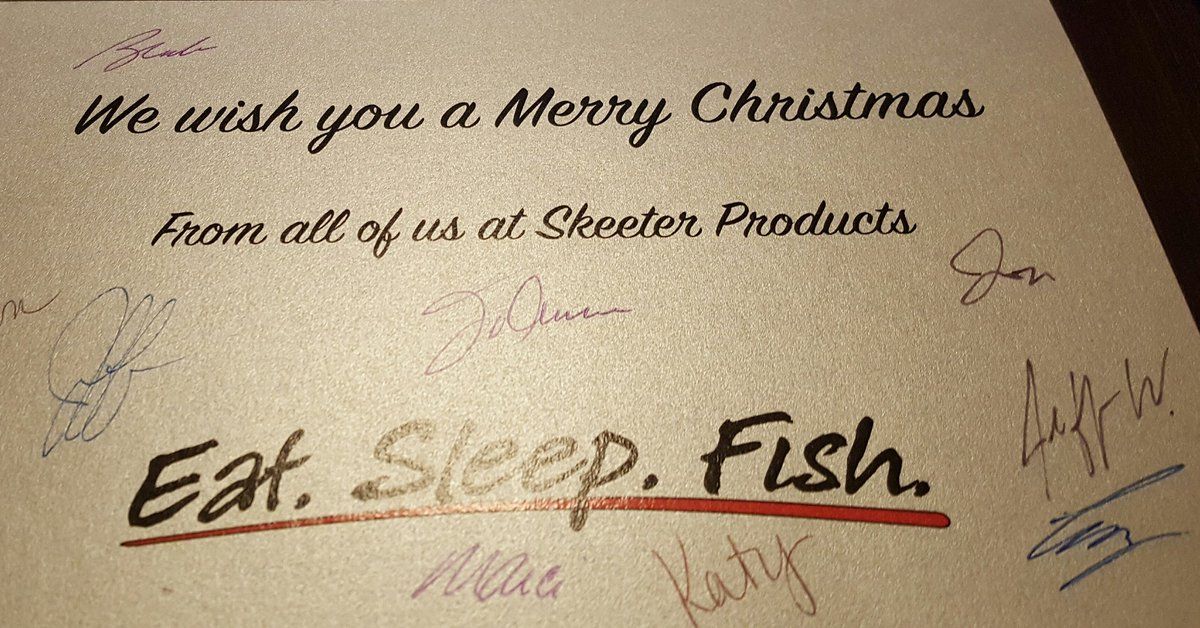 We wish you a Merry Christmas
From all of us at Skeeter Products
Jon
JoAnn
Jeff W.
Eat. Sleep. Fish.
Marci
Katy